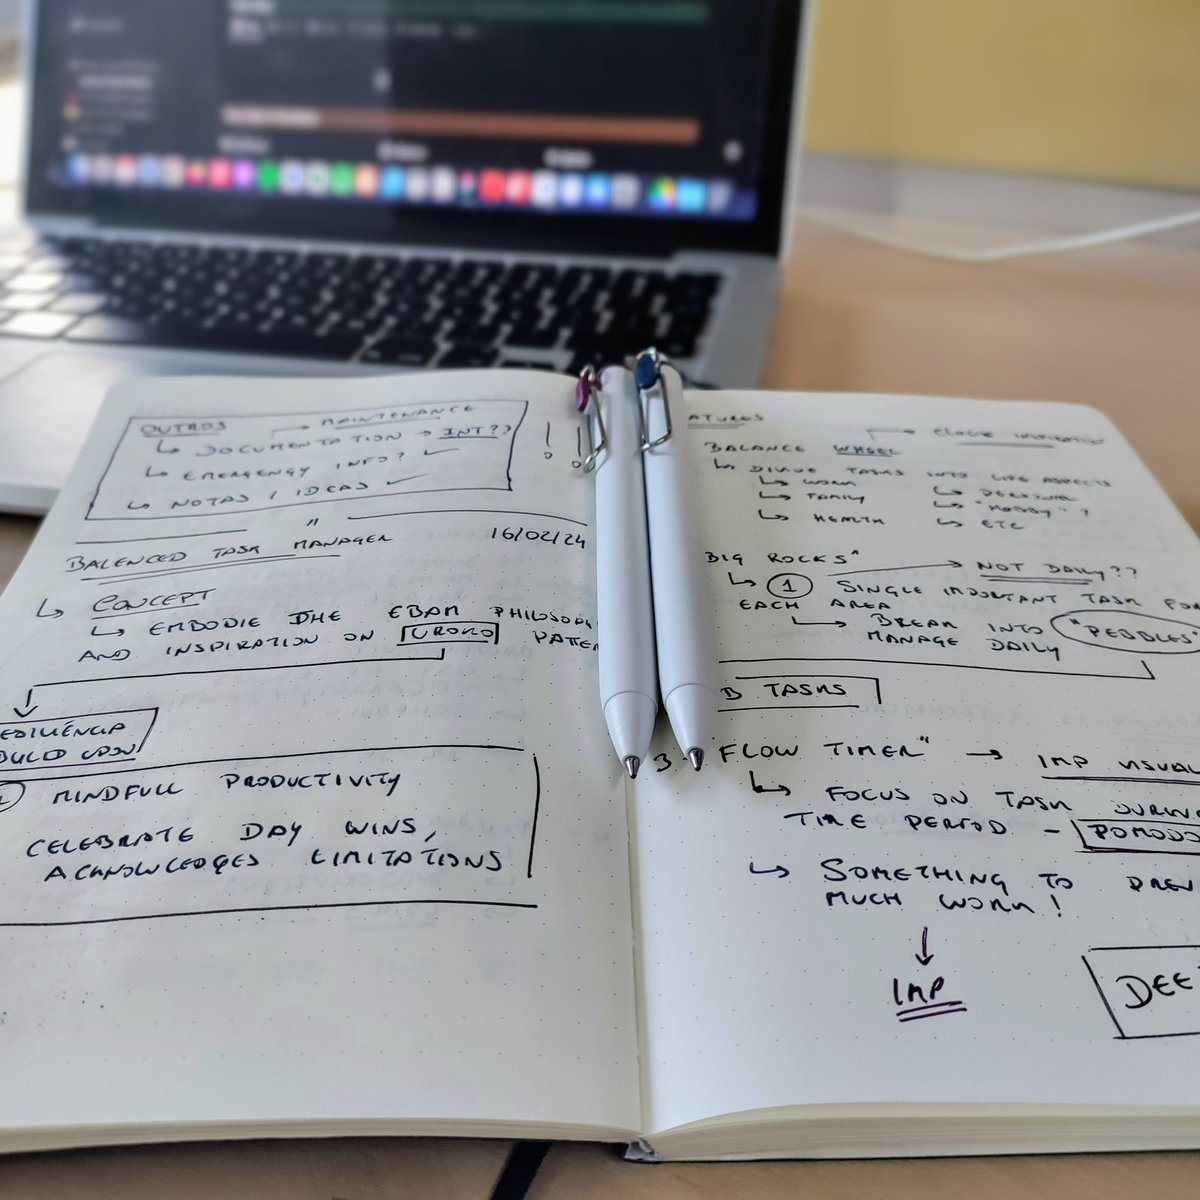 OUTROS
MAINTENANCE
DOCUMENTATION → INT??
EMERGENCY INFO? ✓
NOTAS / IDEAS ✓
!!
BALENCED TASK MANAGER" 16/02/24
CONCEPT
EMBODIE THE EBAM PHILOSOP
AND INSPIRATION ON UROKO PATTE
BUILD UPON
MINDFULL PRODUCTIVITY
CELEBRATE DAY WINS,
ACKNOWLEDGES LIMITATIONS
ATURES
BALANCE WHEEL
DIVIDE TASKS INTO LIFE ASPECTS
WORK
FAMILY
HEALTH
PERSONAL
"HOBBY" ?
ETC
BIG ROCKS" → NOT DAILY??
1 SINGLE IMPORTANT TASK FOR
EACH AREA
BREAK INTO "PEBBLES"
MANAGE DAILY
B TASKS
3. FLOW TIMER" → IMP VISUAL
FOCUS ON TASK DURING
TIME PERIOD - POMODO
SOMETHING TO PREV
MUCH WORK!
IMP
DEE